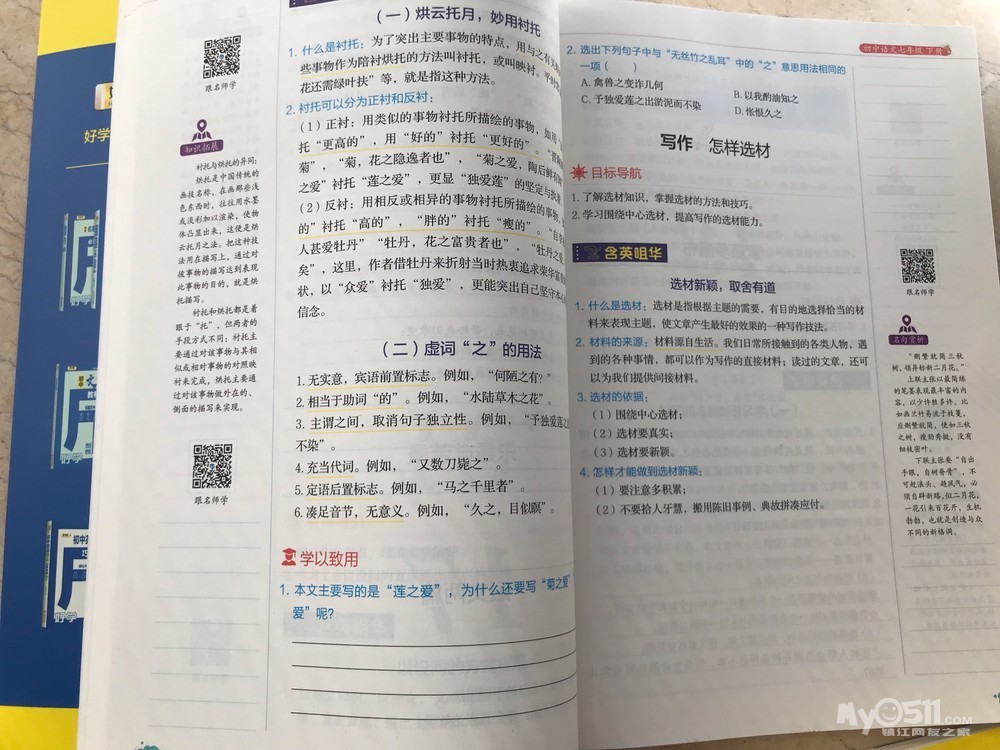 好学
初中
好学
跟名师学
知识拓展
衬托与烘托的异同：
烘托是中国传统的
画技名称，在画那些浅
色东西时，往往用水墨
或淡彩加以渲染，使物
体凸显出来，这便是烘
云托月之法。把这种技
法用在描写上，通过对
彼事物的描写达到表现
此事物的目的，就是烘
托描写。
衬托和烘托都是着
眼于“托”，但两者的
手段方式不同：衬托主
要通过对该事物与其相
似或相对事物的对照映
衬来完成，烘托主要通
过对该事物做外在的、
侧面的描写来实现。
跟名师学
（一）烘云托月，妙用衬托
1. 什么是衬托：为了突出主要事物的特点，用与之有
些事物作为陪衬烘托的方法叫衬托，或叫映衬。平时
花还需绿叶扶”等，就是指这种方法。
2. 衬托可以分为正衬和反衬：
（1）正衬：用类似的事物衬托所描绘的事物，如用
托“更高的”，用“好的”衬托“更好的”。
菊”，“菊，花之隐逸者也”，“菊之爱，陶后鲜有
之爱”衬托“莲之爱”，更显“独爱莲”的坚定与
（2）反衬：用相反或相异的事物衬托所描绘的事物，
的”衬托“高的”，“胖的”衬托“瘦的”。“自
人甚爱牡丹”“牡丹，花之富贵者也”，“牡丹之爱
矣”，这里，作者借牡丹来折射当时热衷追求荣华富
状，以“众爱”衬托“独爱”，更能突出自己坚守本
信念。
（二）虚词“之”的用法
1. 无实意，宾语前置标志。例如，“何陋之有？”
2. 相当于助词“的”。例如，“水陆草木之花”。
3. 主谓之间，取消句子独立性。例如，“予独爱莲之
不染”。
4. 充当代词。例如，“又数刀毙之”。
5. 定语后置标志。例如，“马之千里者”。
6. 凑足音节，无意义。例如，“久之，目似瞑”。
学以致用
1. 本文主要写的是“莲之爱”，为什么还要写“菊之爱”
爱”呢？
初中语文七年级 下册
2. 选出下列句子中与“无丝竹之乱耳”中的“之”意思用法相同的
一项（　　）
A. 禽兽之变诈几何
B. 以我酌油知之
C. 予独爱莲之出淤泥而不染
D. 怅恨久之
写作 怎样选材
目标导航
1. 了解选材知识，掌握选材的方法和技巧。
2. 学习围绕中心选材，提高写作的选材能力。
含英咀华
选材新颖，取舍有道
1. 什么是选材：选材是指根据主题的需要，有目的地选择恰当的材
料来表现主题，使文章产生最好的效果的一种写作技法。
2. 材料的来源：材料源自生活。我们日常所接触到的各类人物，遇
到的各种事情，都可以作为写作的直接材料；读过的文章，还可
以为我们提供间接材料。
3. 选材的依据：
（1）围绕中心选材；
（2）选材要真实；
（3）选材要新颖。
4. 怎样才能做到选材新颖：
（1）要注意多积累；
（2）不要拾人牙慧，搬用陈旧事例、典故拼凑应付。
跟名师学
名句赏析
“删繁就简三秋
树，领异标新二月花。”
上联主张以最简练
的笔墨表现最丰富的内
容，以少许胜多许。比
如画兰竹易流于枝蔓，
应删繁就简，使如三秋
之树，瘦劲秀挺，没有
细枝密叶。
下联主张要“自出
手眼，自树脊骨”，不
可赶浪头、趋风气，必
须自辟新路，似二月花，
一花引来百花开，生机
勃勃，也就是创造与众
不同的新格调。
My0511.COM
镇江网友之家